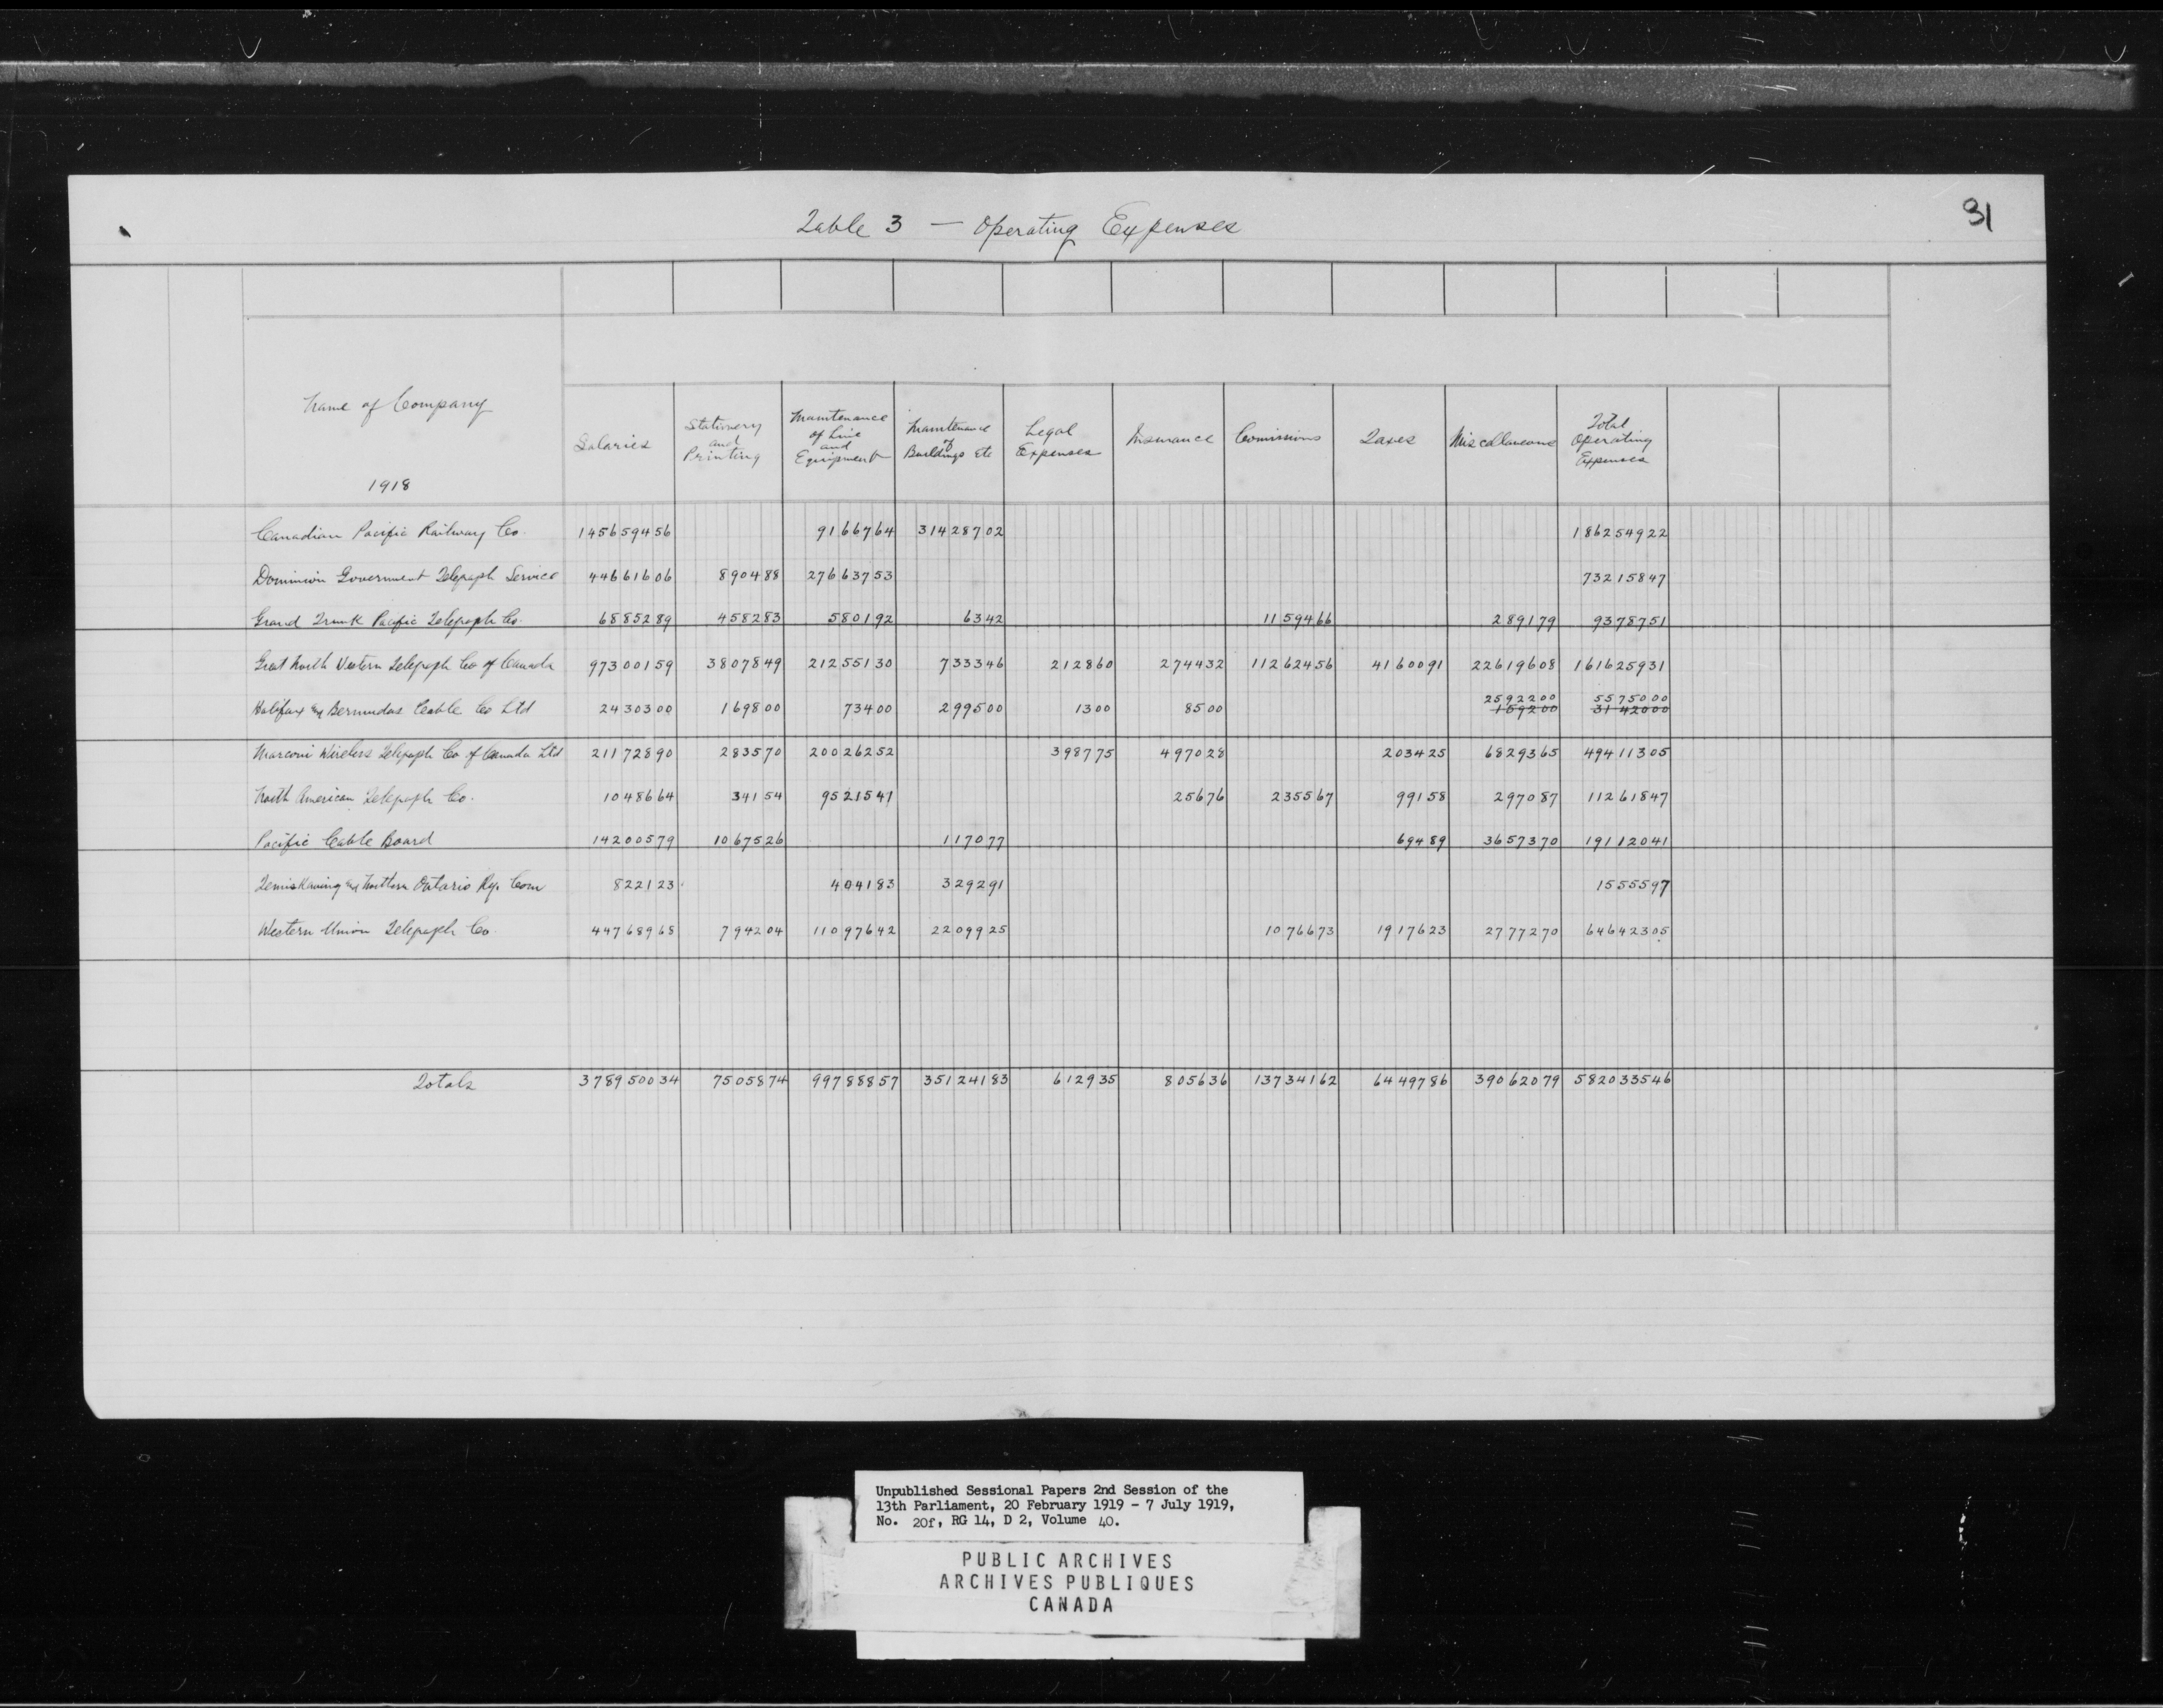 31
Table 3 — Operating Expenses
Name of Company
1918
Salaries
Stationery
and
Printing
Maintenance
of Line
and
Equipment
Maintenance
of
Buildings Etc
Legal
Expenses
Insurance
Comissions
Taxes
Miscellaneous
Total
Operating
Expenses
Canadian Pacific Railway Co. 145659456 9166764 31428702 186254922
Dominion Government Telegraph Service 44661606 890488 27663753 73215847
Grand Trunk Pacific Telegraph Co. 6885289 458283 580192 6342 1159466 289179 9378751
Great North Western Telegraph Co of Canada 97300159 3807849 21255130 733346 212860 274432 11262456 4160091 22619608 161625931
2592200 5575000
Halifax and Bermudas Cable Co Ltd 2430300 169800 73400 299500 1300 8500 159200 3142000
Marconi Wireless Telegraph Co of Canada Ltd 21172890 283570 20026252 398775 497028 203425 6829365 49411305
North American Telegraph Co. 1048664 34154 9521541 25676 235567 99158 297087 11261847
Pacific Cable Board 14200579 1067526 117077 69489 3657370 19112041
Temiskaming and Northern Ontario Ry. Com 822123 404183 329291 1555597
Western Union Telegraph Co. 44768968 794204 11097642 2209925 1076673 1917623 2777270 64642305
Totals 378950034 7505874 99788857 35124183 612935 805636 13734162 6449786 39062079 582033546
Unpublished Sessional Papers 2nd Session of the
13th Parliament, 20 February 1919 - 7 July 1919,
No. 20f, RG 14, D 2, Volume 40.
PUBLIC ARCHIVES
ARCHIVES PUBLIQUES
CANADA